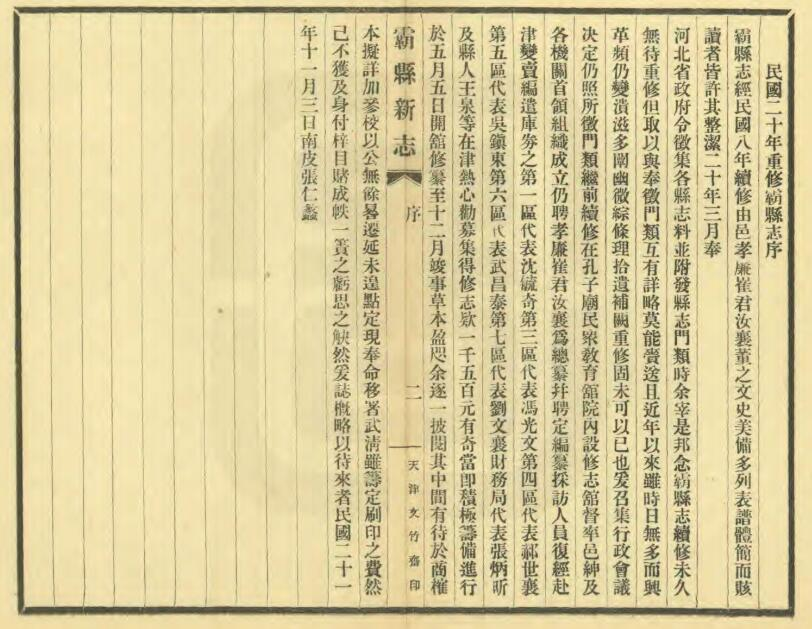 民國二十年重修霸縣志序
霸縣志經民國八年續修由邑孝廉崔君汝襄董之文史美備多列表譜體簡而賅
讀者皆許其整潔二十年三月奉
河北省政府令徵集各縣志料並附發縣志門類時余宰是邦念霸縣志續修未久
無待重修但取以與奉徵門類互有詳略莫能賫送且近年以來雖時日無多而興
革頻仍變潰滋多闡幽微綜條理拾遺補闕重修固未可以已也爰召集行政會議
決定仍照所徵門類繼前續修在孔子廟民眾教育館院內設修志館督率邑紳及
各機關首領組織成立仍聘孝廉崔君汝襄爲總纂并聘定編纂採訪人員復經赴
津變賣編遣庫劵之第一區代表沈毓奇第三區代表馮光文第四區代表郝世襄
第五區代表吳鎭東第六區代表武昌泰第七區代表劉文襄財務局代表張炳昕
及縣人王泉等在津熱心勸募集得修志欵一千五百元有奇當卽積極籌備進行
於五月五日開舘修纂至十二月竣事草本盈咫余逐一披閱其中間有待於商榷
霸縣新志
序
二
天津文竹齋印
本擬詳加參校以公無餘晷遷延未遑點定現奉命移署武淸雖籌定刷印之費然
己不獲及身付梓目賭成帙一簣之虧思之觖然爰誌槪略以待來者民國二十一
年十一月三日南皮張仁蠡